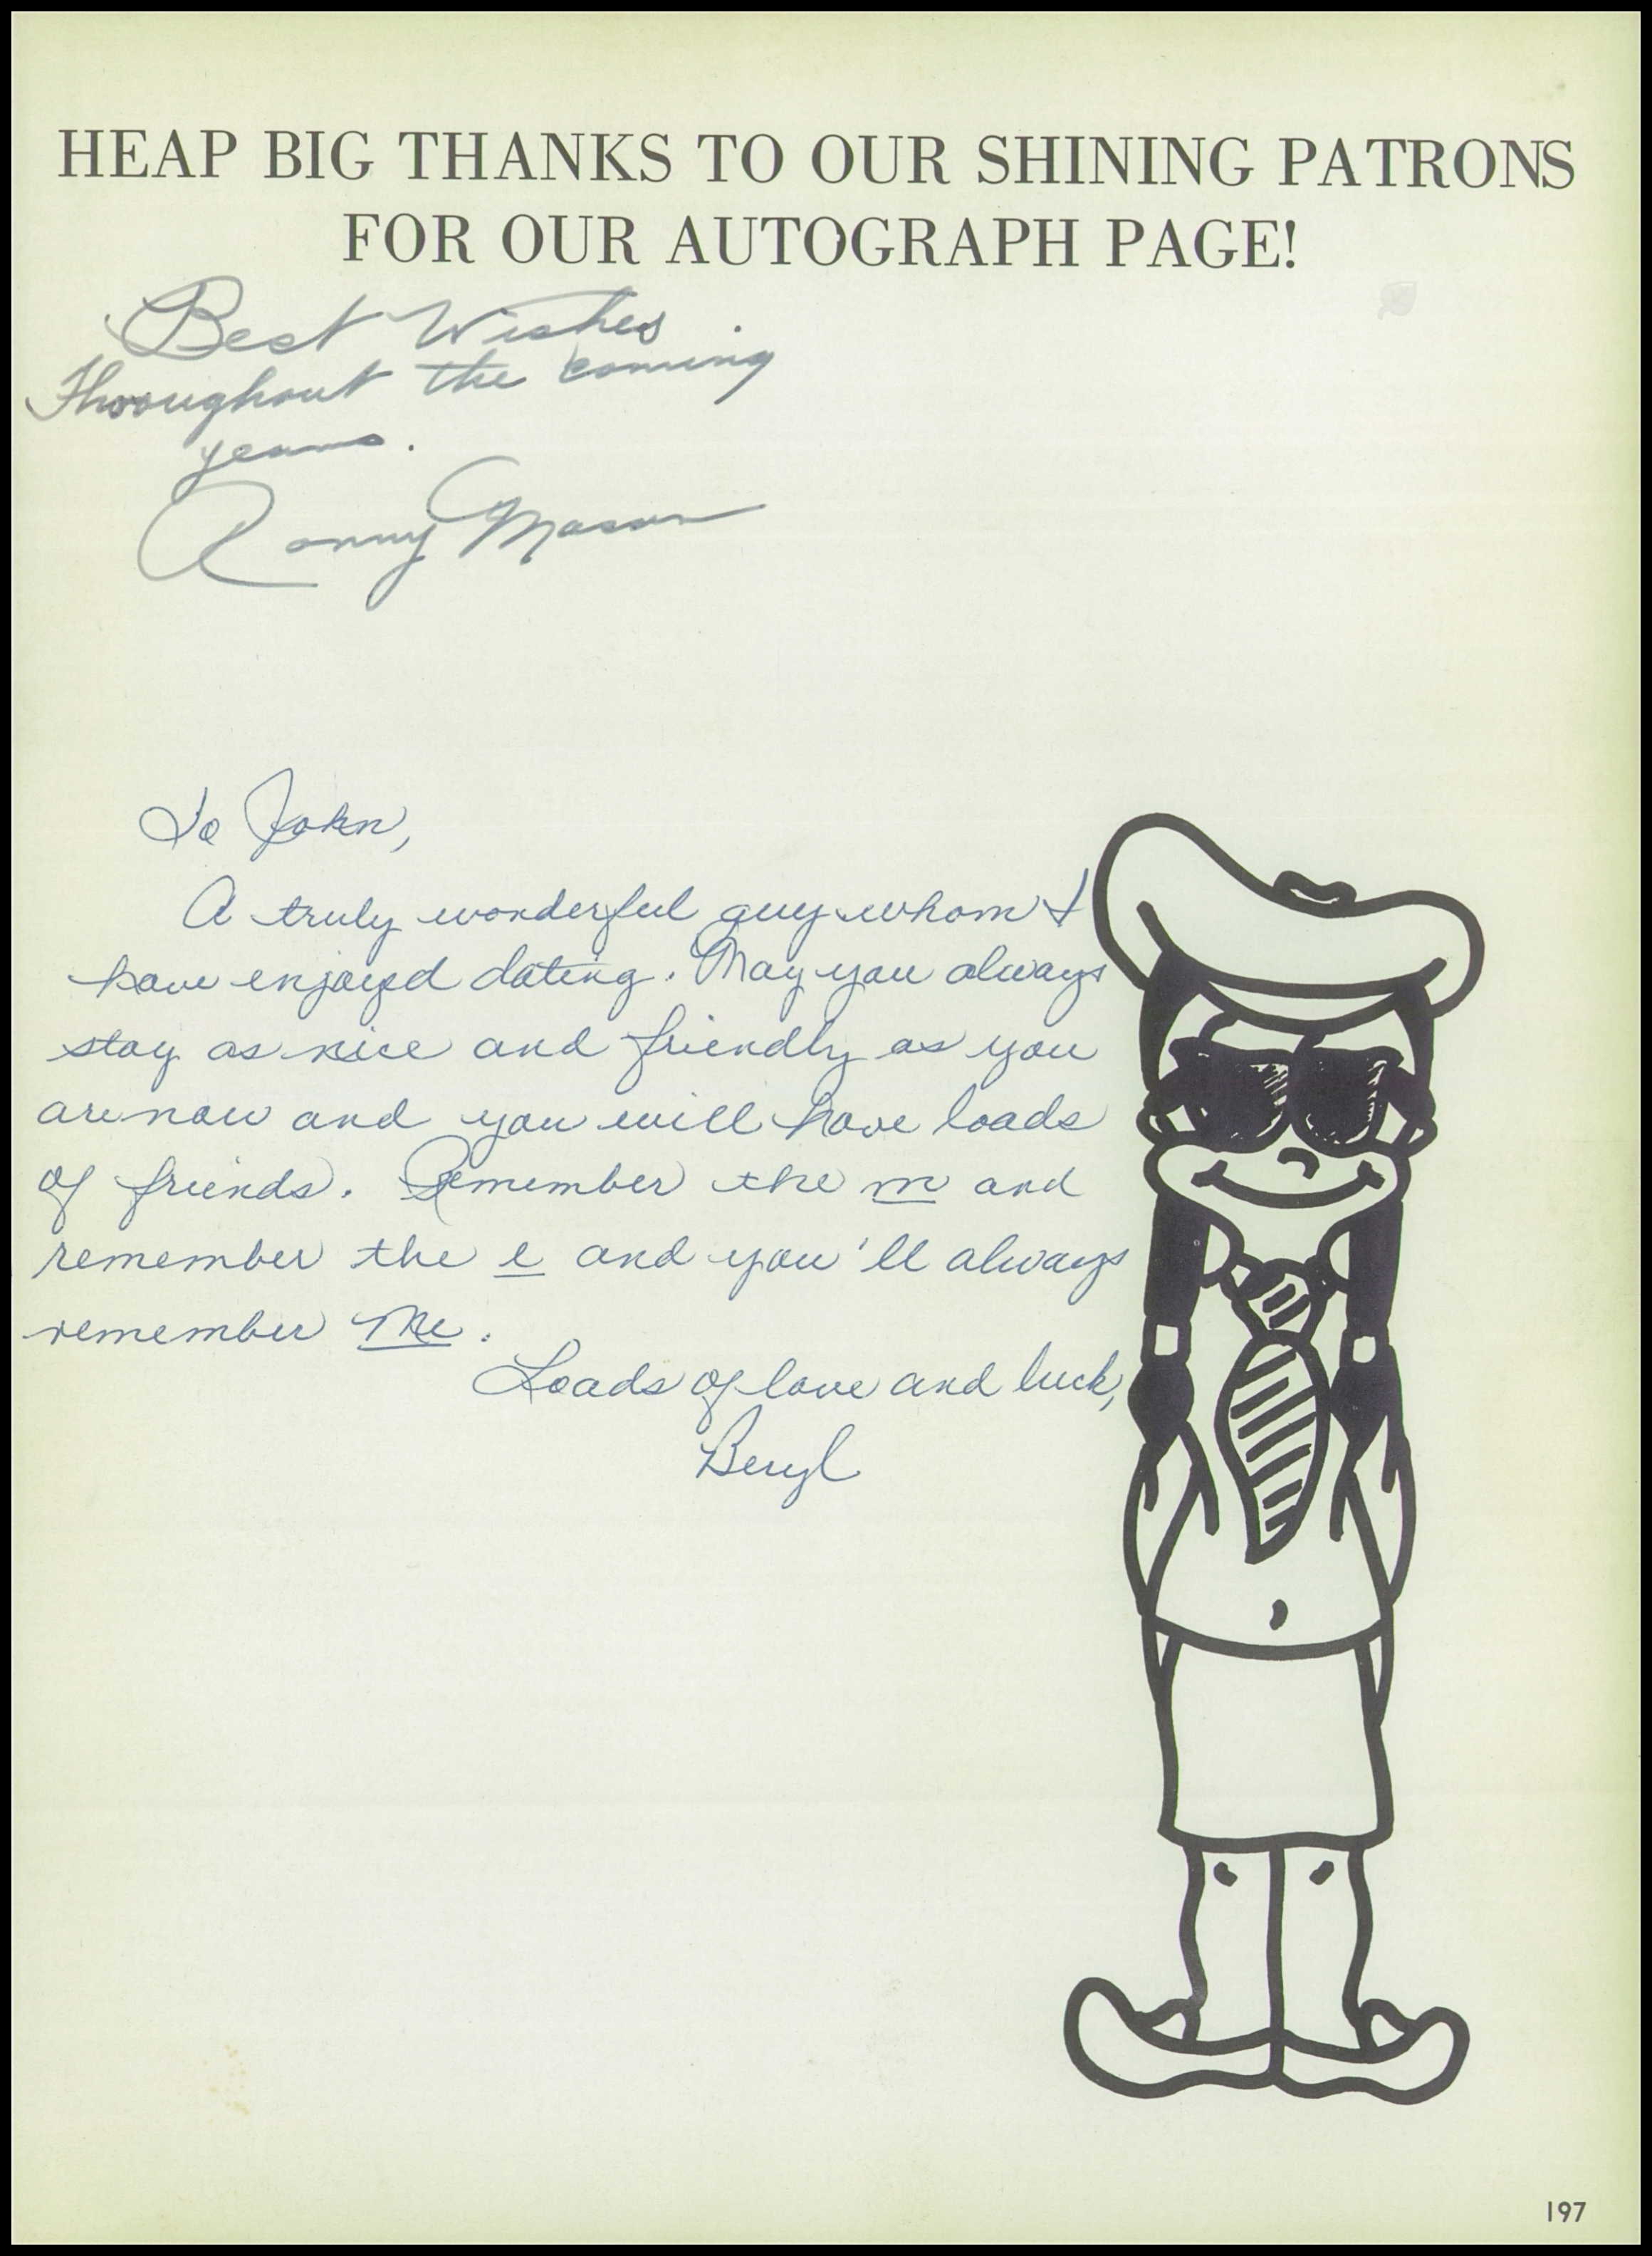 HEAP BIG THANKS TO OUR SHINING PATRONS
FOR OUR AUTOGRAPH PAGE!
Best Wishes
Throughout the coming
years.
Ronny Mason
To John,
A truly wonderful guy whom I
have enjoyed dating. May you always
stay as nice and friendly as you
are now and you will have loads
of friends. Remember the m and
remember the e and you'll always
remember Me.
Loads of love and luck,
Beryl
197